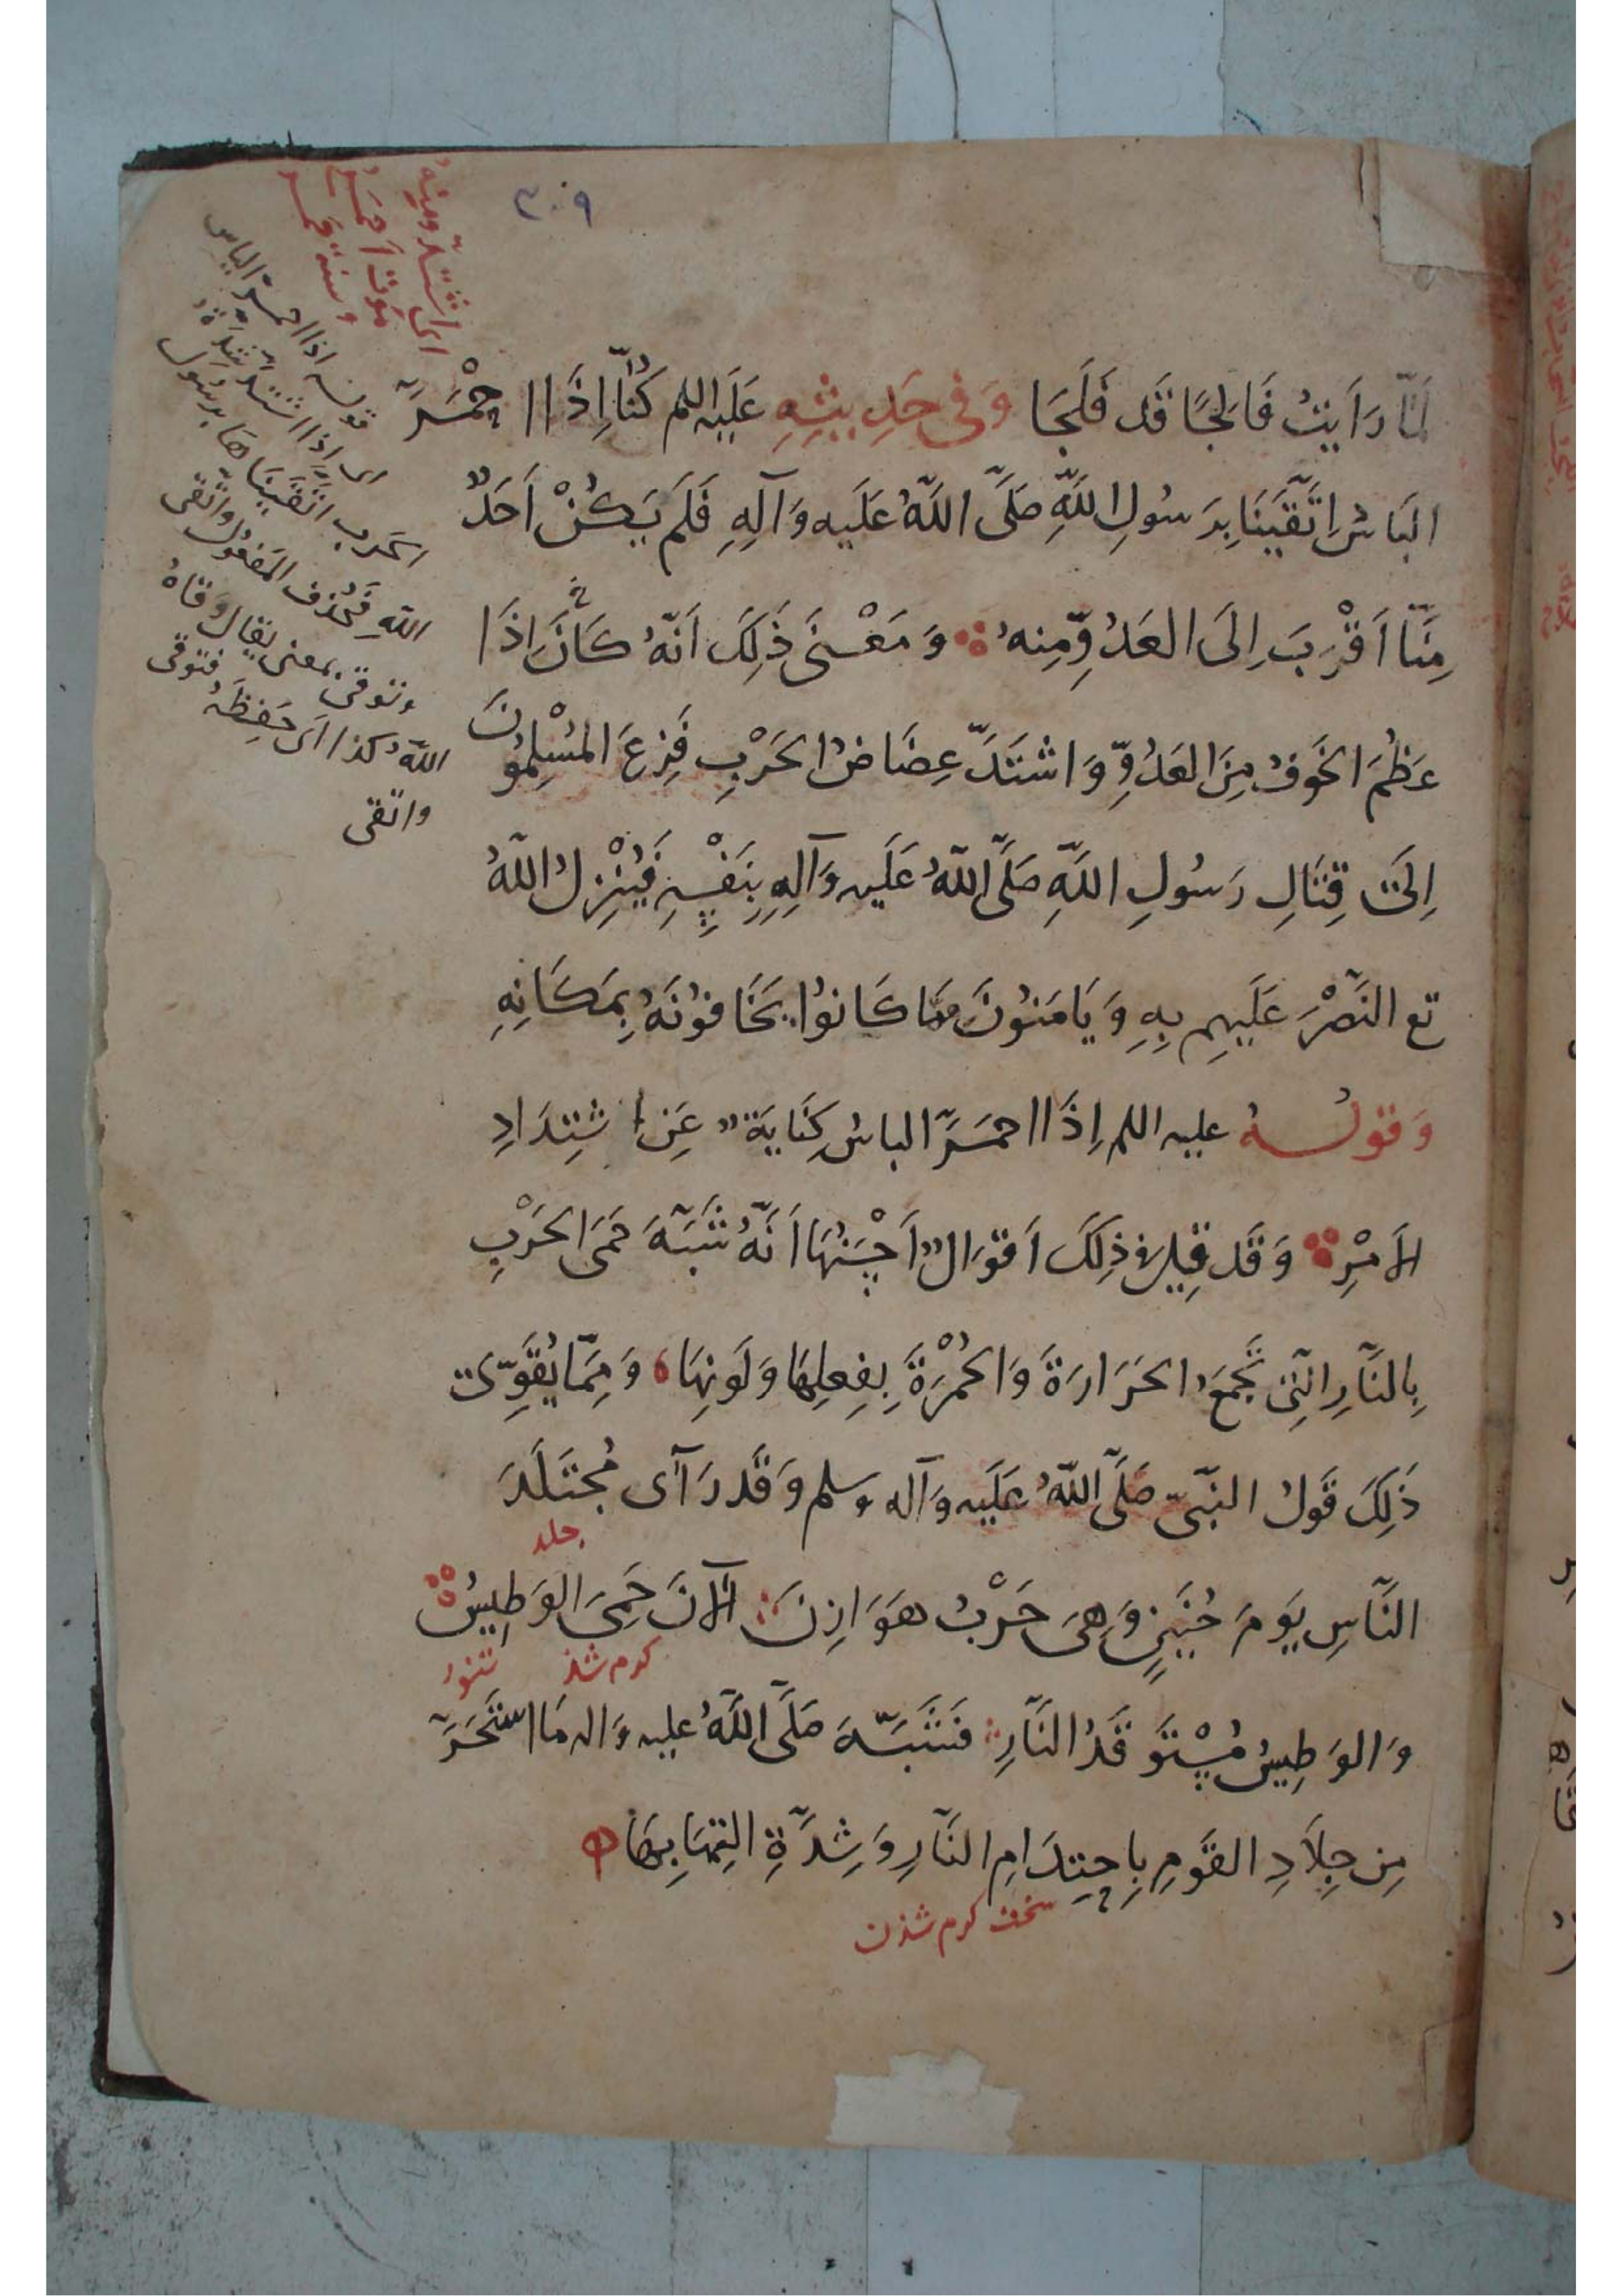 ٣٠٩
اى اشتدّ ومنه
موت احمر
وسنة حمر
لَمَّا رَاَيتُ فَالِجًا قَد فَلَجَا وَفى حَدِيثِهِ عَلَيه اللم كُنَّا اِذَا احْمَرَّ
البَاسُ اِتَّقَينَا بِرَسُولِ اللَّهِ صَلَّى اللَّهُ عَلَيه وَآلِهِ فَلَم يَكُنْ اَحَدٌ
مِنَّا اَقْرَبَ اِلَى العَدُوِّ مِنهُ وَمَعْنَى ذَلِكَ اَنَّهُ كَانَ اِذَا
عَظُمَ الخَوفُ مِنَ العَدُوِّ وَاشتَدَّ عِضَاضُ الحَرْبِ فَزِعَ المُسْلِمُونَ
اِلَى قِتَالِ رَسُولِ اللَّهِ صَلَّى اللَّهُ عَلَيه وَآلِهِ بِنَفْسِهِ فَيُنْزِلُ اللَّهُ
تع النَّصْرَ عَلَيهِم بِهِ وَيَامَنُونَ مِمَّا كَانُوا يَخَافُونَهُ بِمَكَانِهِ
وَقولُه عليه اللم اِذَا احمَرَّ الباسُ كِنَايَةٌ عَنِ اشتِدَادِ
الاَمْرِ وَقَد قِيلَ فى ذلِكَ اَقوَالٌ اَحْسَنُهَا اَنَّهُ شَبَّهَ حَمىَ الحَرْبِ
بِالنَّارِ الَّتِى تَجمَعُ الحَرَارَةَ وَالحُمْرَةَ بِفِعلِهَا وَلَونِهَا وَمِمَّا يُقَوِّى
ذَلِكَ قَولُ النَّبىّ صَلَّى اللَّهُ عَلَيه وَآله وسلم وَقَد رَآى مُجتَلَدَ
جلد
النَّاسِ يَومَ حُنَينٍ وَهِىَ حَرْبُ هَوَازِنَ الآنَ حَمِىَ الوَطِيسُ
كرم شد تنور
وَالوَطِيسُ مُسْتَوقَدُ النَّارِ فَشَبَّهَ صَلَّى اللَّهُ عليه وَاله مَا استَحَرَّ
مِن جِلاَدِ القَومِ بِاحتِدَامِ النَّارِ وَشِدَّةِ التِهَابِهَا
سخت كرم شدن
قوله اذا احمرّ الباس
اى اِذا اشتدّ شدة
الحرب اتّقينا هَا برسُول
اللّهِ فَحُذف المَفعُول واتّقى
وتوقى بمعنى يقال وقاهُ
اللّهُ كذا اَى حَفِظَهُ فتوقى
واتّقى